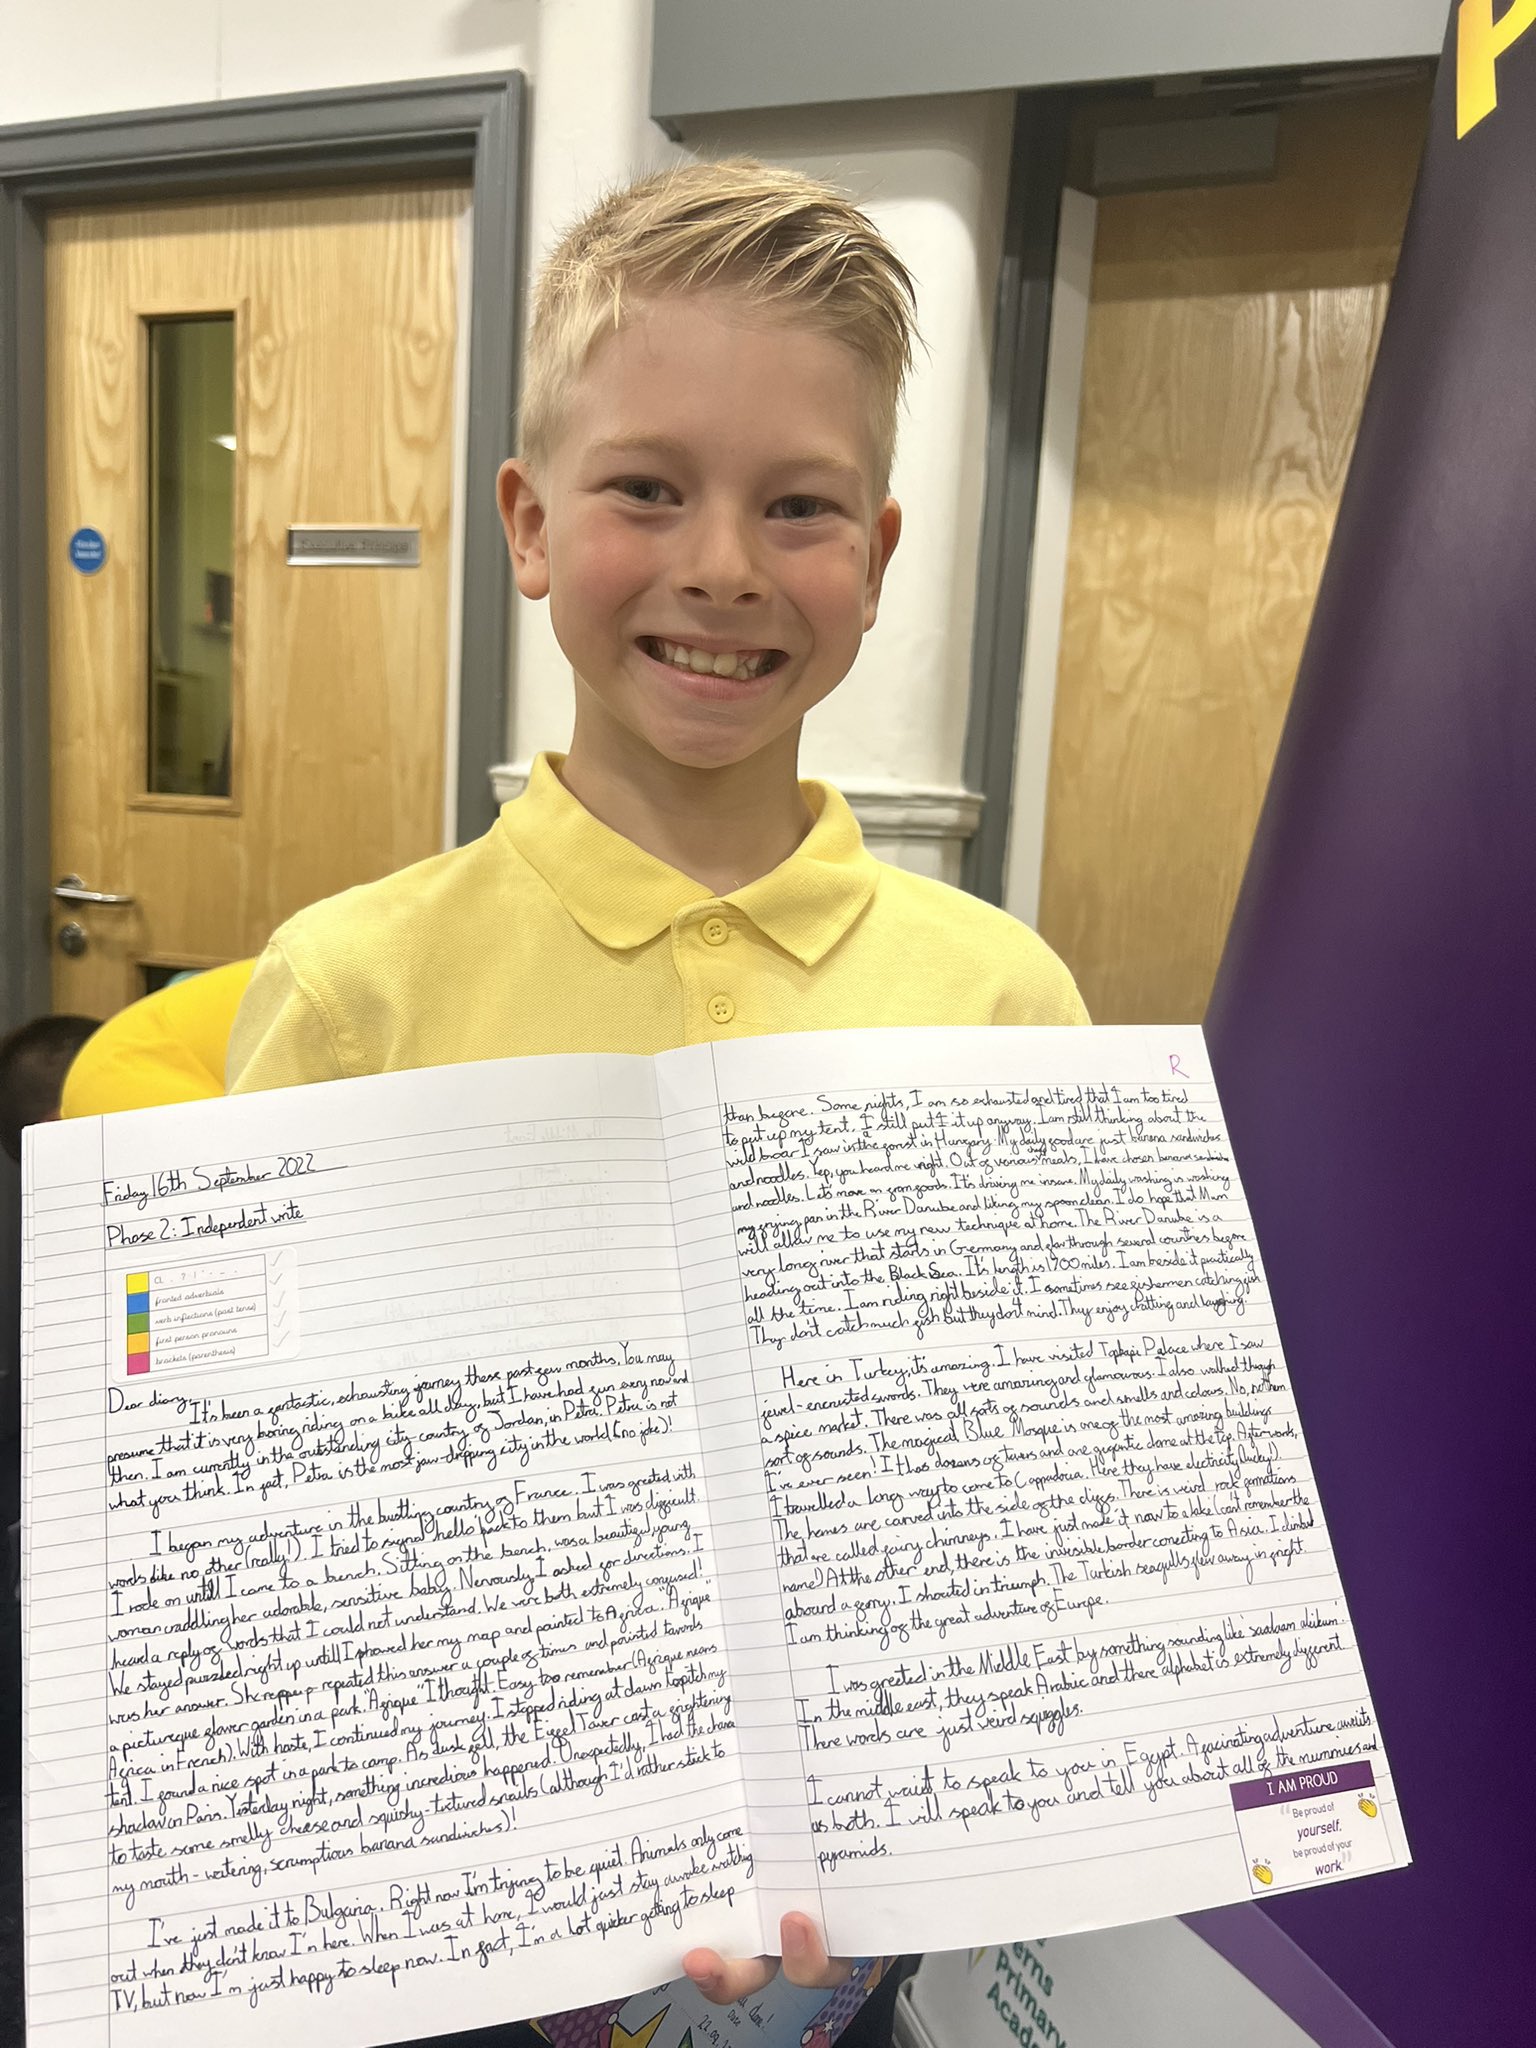 P
Executive Principal
Friday 16th September 2022
Phase 2: Independent write
fronted adverbials
verb inflections (past tense)
first person pronouns
brackets (parenthesis)
Dear diary,
It's been a fantastic, exhausting journey these past few months. You may
presume that it is very boring riding on a bike all day, but I have had fun every now and
then. I am currently in the outstanding city-country of Jordan, in Petra. Petra is not
what you think. In fact, Petra is the most jaw-dropping city in the world (no joke)!
I began my adventure in the bustling country of France. I was greeted with
words like no other (really!). I tried to signal 'hello' back to them but I was difficult.
I rode on untill I came to a bench. Sitting on the bench, was a beautiful young
woman craddling her adorable, sensitive baby. Nervously, I asked for directions. I
heard a reply of words that I could not understand. We were both extremely confused!
We stayed puzzled right up untill I showed her my map and pointed to Africa. "Afrique"
was her answer. She repeated this answer a couple of times and pointed towards
a picturque flower garden in a park. "Afrique" I thought. Easy too remember (Afrique means
Africa in French). With haste, I continued my journey. I stopped riding at dawn to pitch my
tent. I found a nice spot in a park to camp. As dusk fell, the Eiffel Tower cast a frightening
shadow on Paris. Yesterday night, something incredious happened. Unexpectedly, I had the chance
to taste some smelly cheese and squishy-textured snails (although I'd rather stick to
my mouth-watering, scrumptious banana sandwiches)!
I've just made it to Bulgaria. Right now I'm trying to be quiet. Animals only come
out when they don't know I'm here. When I was at home, I would just stay awake watching
TV, but now I'm just happy to sleep now. In fact, I'm a lot quicker getting to sleep
R
than before. Some nights, I am so exhausted and tired that I am too tired
to put up my tent. I still put it up anyway. I am still thinking about the
wild boar I saw in the forest in Hungary. My daily food are just banana sandwiches
and noodles. Yep, you heard me right. Out of various meals, I have chosen banana sandwiches
and noodles. Let's move on from foods. It's driving me insane. My daily washing is washing
my frying pan in the River Danube and liking my spoon clean. I do hope that Mum
will allow me to use my new technique at home. The River Danube is a
very long river that starts in Germany and flow through several countries before
heading out into the Black Sea. It's length is 1700 miles. I am beside it practically
all the time. I am riding right beside it. I sometimes see fishermen catching fish
They don't catch much fish but they don't mind. They enjoy chatting and laughing.
Here in Turkey, it's amazing. I have visited Topkapi Palace where I saw
jewel-encrusted swords. They were amazing and glamourous. I also walked through
a spice market. There was all sorts of sounds and smells and colours. No, not them
sort of sounds. The magical Blue Mosque is one of the most amazing buildings
I've ever seen! It has dozens of towers and one gigantic dome at the top. Afterwords,
I travelled a long way to come to Cappadocia. Here they have electricity (lucky!).
The homes are carved into the side of the cliffs. There is weird rock formations
that are called fairy chimneys. I have just made it now to a lake (can't remember the
name!) At the other end, there is the invisible border conecting to Asia. I climbed
abourd a ferry. I shouted in triumph. The Turkish seagulls flew away in fright.
I am thinking of the great adventure of Europe.
I was greeted in the Middle East by something sounding like 'saalaam alikum'.
In the middle east, they speak Arabic and there alphabet is extremely different
There words are just weird squiggles.
I cannot wait to speak to you in Egypt. A facinating adventure awaits
us both. I will speak to you and tell you about all of the mummies and
pyramids.
I AM PROUD
"Be proud of
yourself,
be proud of your
work."
erns
Primary
Acade